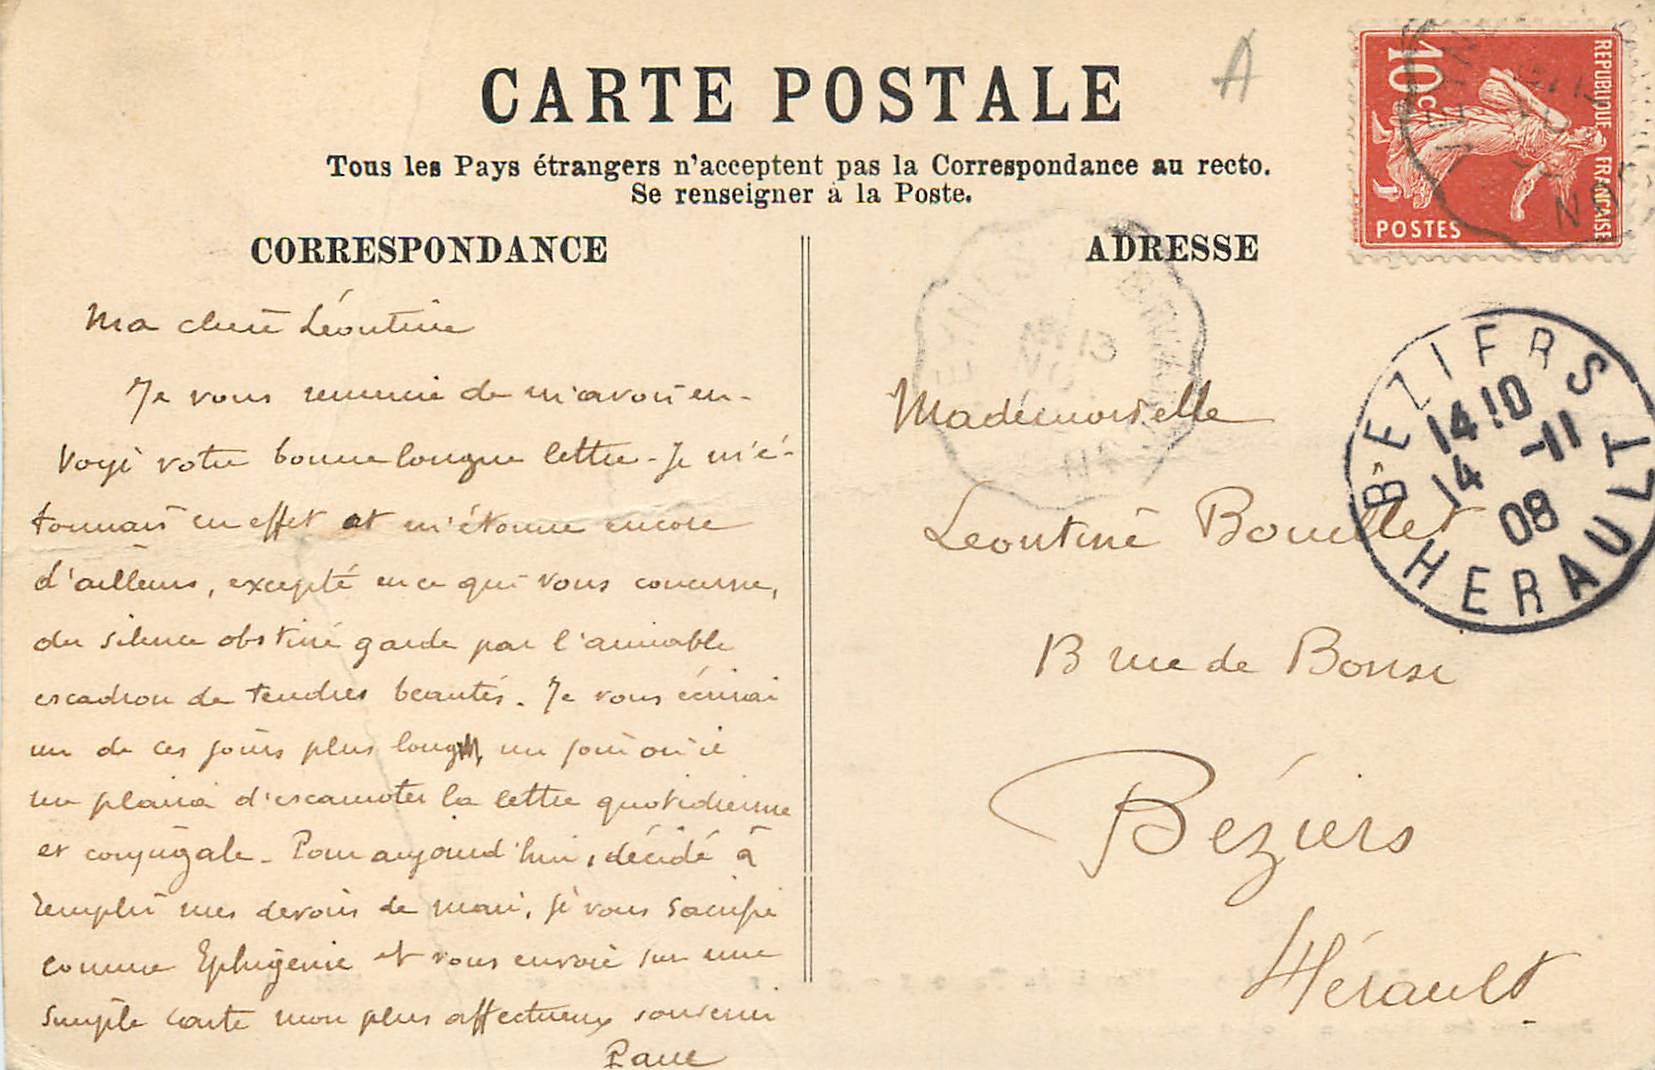 CARTE POSTALE
A
Tous les Pays étrangers n'acceptent pas la Correspondance au recto.
Se renseigner à la Poste.
CORRESPONDANCE
Ma chère Léontine
Je vous remercie de m'avoir en-
voyé votre bonne longue lettre - Je m'é-
tonnais en effet et m'étonne encore
d'ailleurs, excepté en ce qui vous concerne,
du silence obstiné gardé par l'aimable
escadron de tendres beautés. Je vous écrirai
un de ces jours plus long, un jour où j'ai
un plaisir d'escamoter la lettre quotidienne
et conjugale - Pour aujourd'hui, décidé à
remplir mes devoirs de mari, je vous sacrifie
comme Ephigénie et vous envoie sur une
simple carte mon plus affectueux souvenir
ADRESSE
Mademoiselle
Léontine Bouillet
13 rue de Bonsi
Béziers
Hérault
REPUBLIQUE FRANÇAISE
10c
POSTES
BEZIERS
14 10
14 -11
08
HERAULT